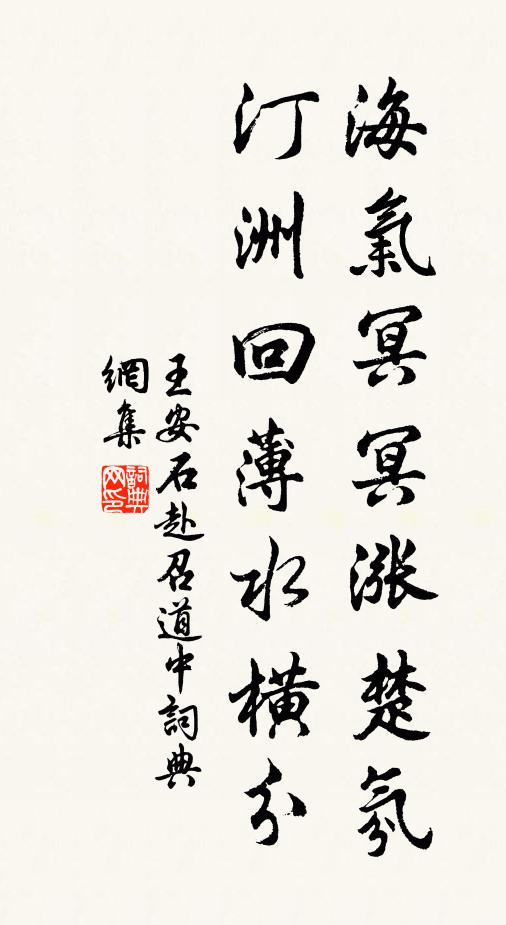 海氣冥冥漲楚氛
汀洲回薄水橫分
王安石赴召道中詞典
網集
詞典
网印